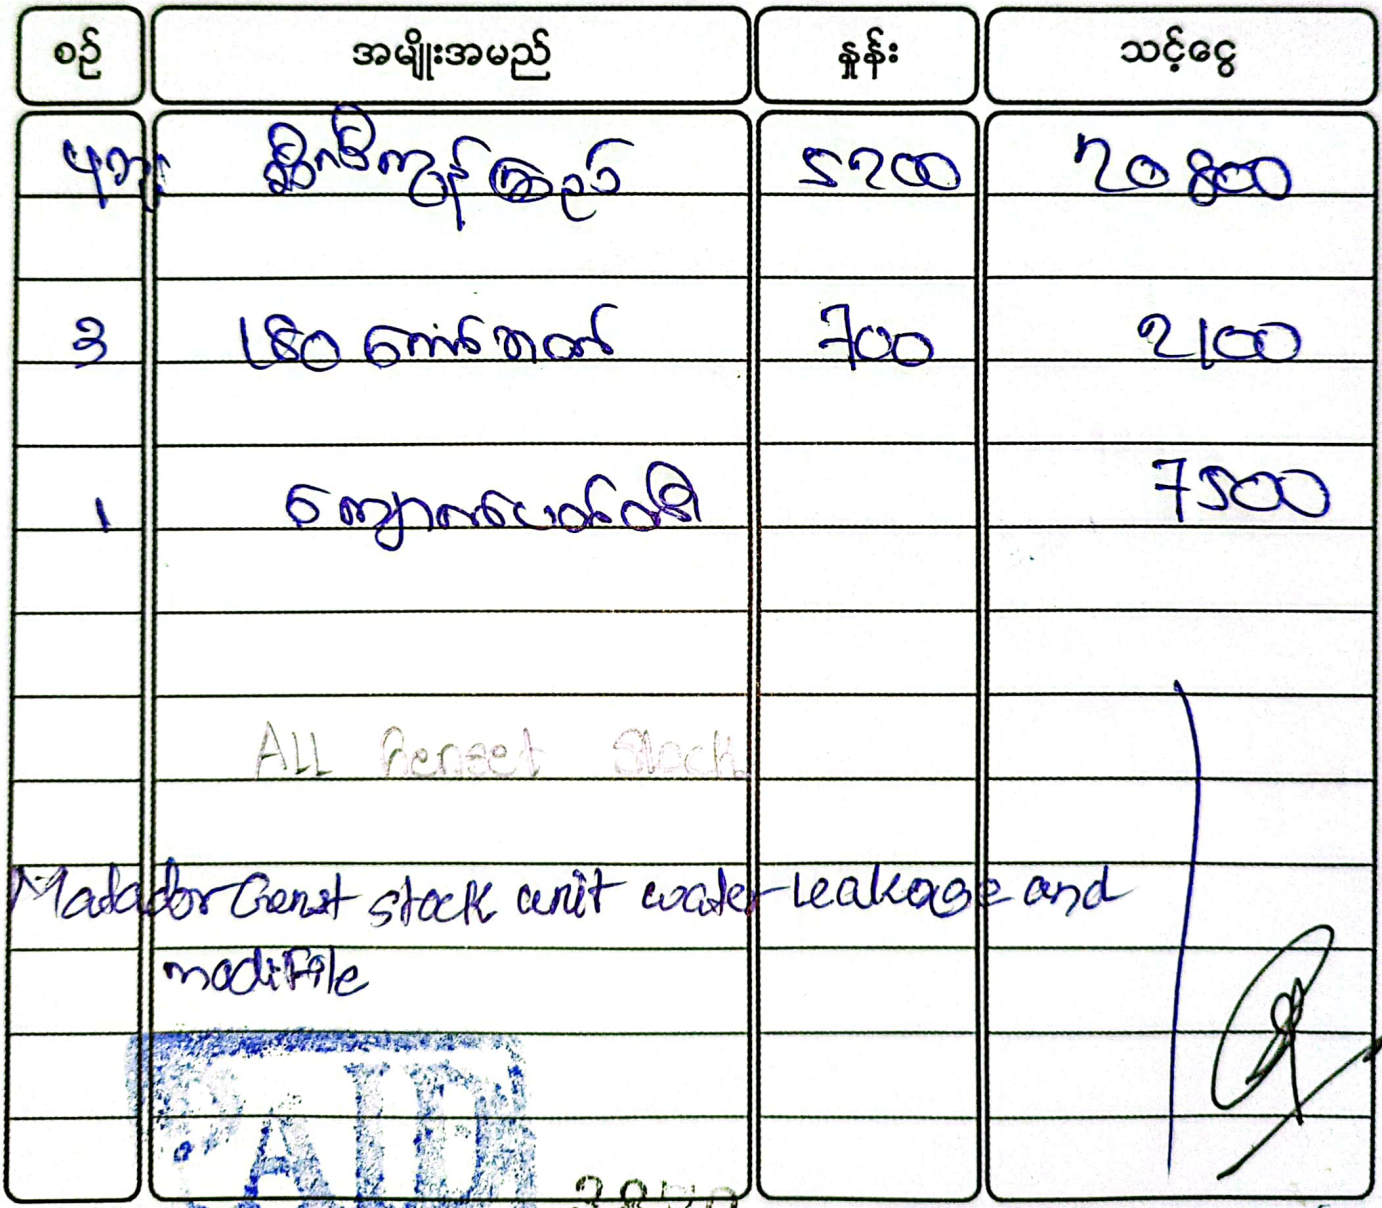 စဉ် အမျိုးအမည် နှုန်း သင့်ငွေ
5200 20800
3 180 ကော်ဖတ် 700 2100
1 ကျောက်ပတ်တီး 7500
ALL Genset Stock
Matador Genst stock unit water Leakage and
modifile
PAID